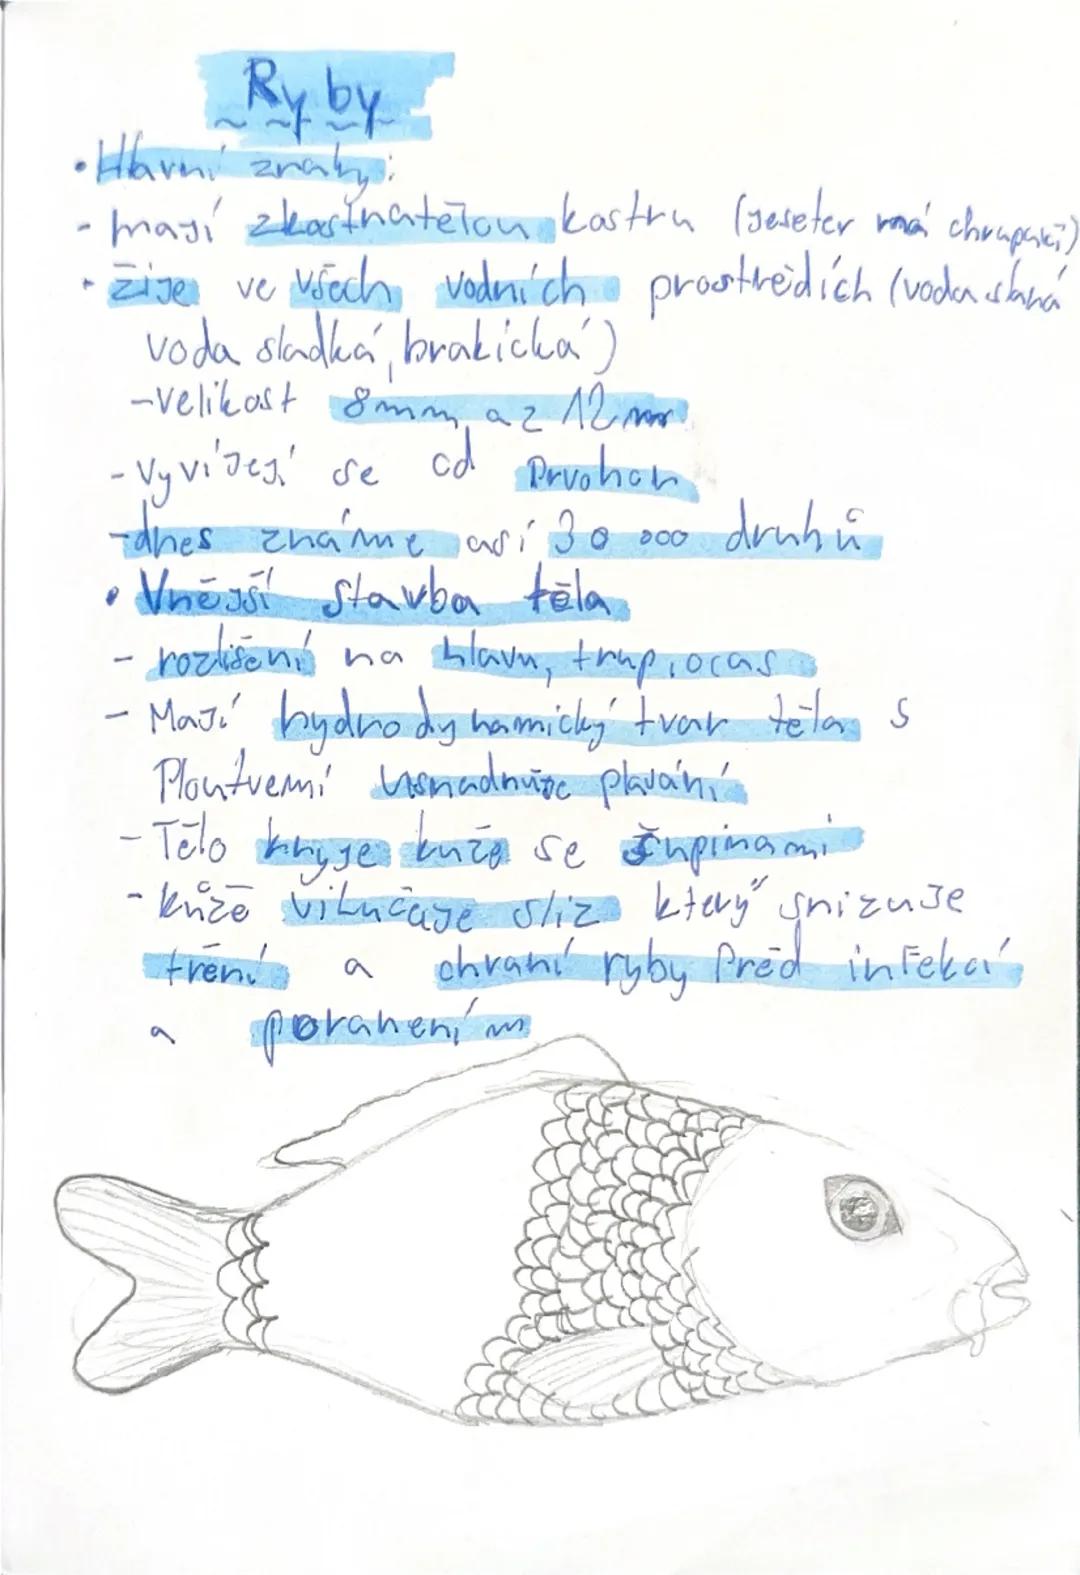 Ryby
• Hlavní znaky:
- mají zkostnatělou kostru (jeseter má chrupavčí)
• žije ve všech vodních prostředích (voda slaná
voda sladká, brakická)
- velikost 8mm az 12 m
- Vyvíjejí se od Prvohor
- dnes známe asi 30 000 druhů
• Vnější stavba těla
- rozlišení na hlavu, trup, ocas
- Mají hydrodynamický tvar těla s
Ploutvemi usnadnuje plavání
- Tělo kryje kuže se šupinami
- kůže vilučuje sliz který snizuje
trění a chraní ryby Před infekcí
a poranením